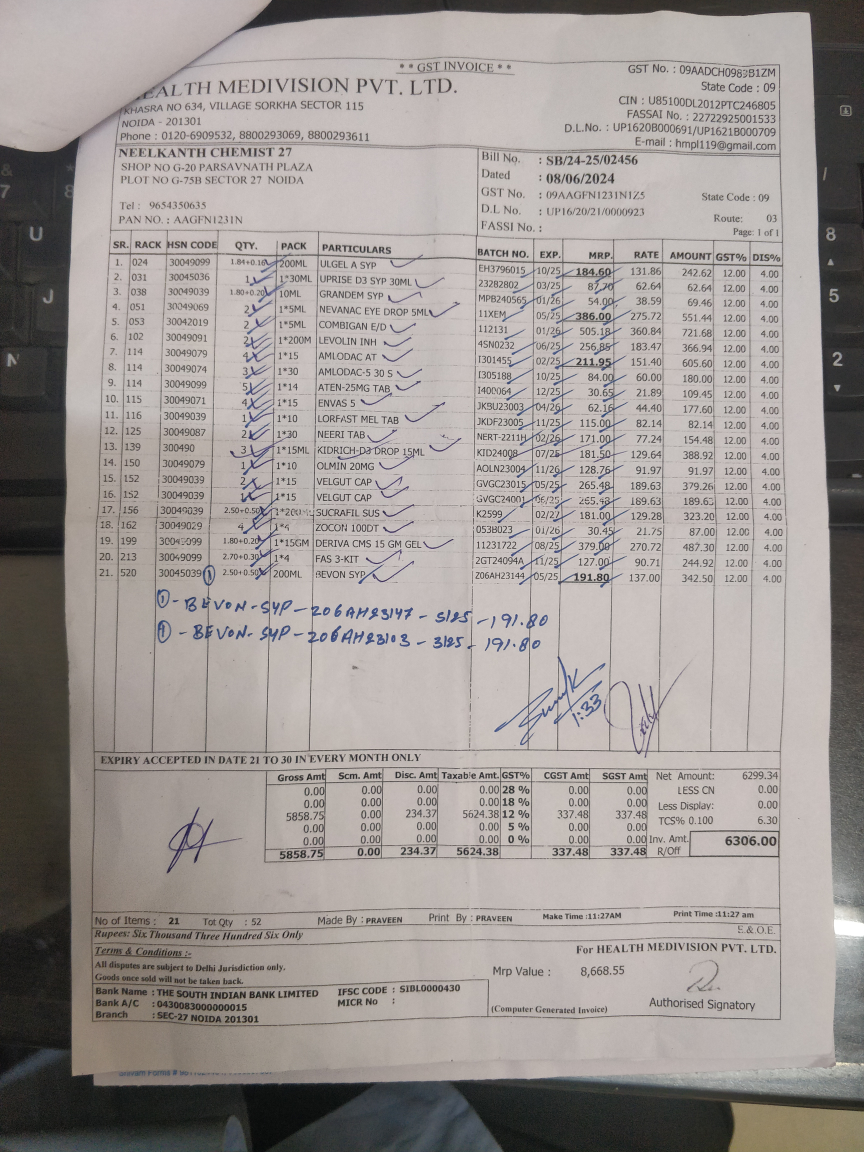 * * GST INVOICE * *
HEALTH MEDIVISION PVT. LTD.
KHASRA NO 634, VILLAGE SORKHA SECTOR 115
NOIDA - 201301
Phone : 0120-6909532, 8800293069, 8800293611
GST No. : 09AADCH0983B1ZM
State Code : 09
CIN : U85100DL2012PTC246805
FASSAI No. : 22722925001533
D.L.No. : UP1620B000691/UP1621B000709
E-mail : hmpl119@gmail.com
NEELKANTH CHEMIST 27
SHOP NO G-20 PARSAVNATH PLAZA
PLOT NO G-75B SECTOR 27 NOIDA
Tel : 9654350635
PAN NO. : AAGFN1231N
Bill No. : SB/24-25/02456
Dated : 08/06/2024
GST No. : 09AAGFN1231N1Z5 State Code : 09
D.L No. : UP16/20/21/0000923
FASSI No. : Route: 03
Page: 1 of 1
SR. RACK HSN CODE QTY. PACK PARTICULARS BATCH NO. EXP. MRP. RATE AMOUNT GST% DIS%
1. 024 30049099 1.84+0.16 200ML ULGEL A SYP EH3796015 10/25 184.60 131.86 242.62 12.00 4.00
2. 031 30045036 1 1*30ML UPRISE D3 SYP 30ML 23282802 03/25 87.70 62.64 62.64 12.00 4.00
3. 038 30049039 1.80+0.20 10ML GRANDEM SYP MPB240565 01/26 54.00 38.59 69.46 12.00 4.00
4. 051 30049069 2 1*5ML NEVANAC EYE DROP 5ML 11XEM 05/25 386.00 275.72 551.44 12.00 4.00
5. 053 30042019 2 1*5ML COMBIGAN E/D 112131 01/26 505.18 360.84 721.68 12.00 4.00
6. 102 30049091 2 1*200M LEVOLIN INH 4SN0232 06/25 256.85 183.47 366.94 12.00 4.00
7. 114 30049079 4 1*15 AMLODAC AT I301455 02/25 211.95 151.40 605.60 12.00 4.00
8. 114 30049074 3 1*30 AMLODAC-5 30 S I305188 10/25 84.00 60.00 180.00 12.00 4.00
9. 114 30049099 5 1*14 ATEN-25MG TAB I400064 12/25 30.65 21.89 109.45 12.00 4.00
10. 115 30049071 4 1*15 ENVAS 5 JKBU23003 04/26 62.16 44.40 177.60 12.00 4.00
11. 116 30049039 1 1*10 LORFAST MEL TAB JKDF23005 11/25 115.00 82.14 82.14 12.00 4.00
12. 125 30049087 2 1*30 NEERI TAB NERT-2211H 02/26 171.00 77.24 154.48 12.00 4.00
13. 139 300490 3 1*15ML KIDRICH-D3 DROP 15ML KID24008 07/25 181.50 129.64 388.92 12.00 4.00
14. 150 30049079 1 1*10 OLMIN 20MG AOLN23004 11/26 128.76 91.97 91.97 12.00 4.00
15. 152 30049039 2 1*15 VELGUT CAP GVGC23015 05/25 265.48 189.63 379.26 12.00 4.00
16. 152 30049039 1 1*15 VELGUT CAP GVGC24001 06/25 265.48 189.63 189.63 12.00 4.00
17. 156 30049039 2.50+0.50 1*200ML SUCRAFIL SUS K2599 02/27 181.00 129.28 323.20 12.00 4.00
18. 162 30049029 4 1*4 ZOCON 100DT 053B023 01/26 30.45 21.75 87.00 12.00 4.00
19. 199 30049099 1.80+0.20 1*15GM DERIVA CMS 15 GM GEL 11231722 08/25 379.00 270.72 487.30 12.00 4.00
20. 213 30049099 2.70+0.30 1*4 FAS 3-KIT 2GT24094A 11/25 127.00 90.71 244.92 12.00 4.00
21. 520 30045039 ① 2.50+0.50 200ML BEVON SYP Z06AH23144 05/25 191.80 137.00 342.50 12.00 4.00
① - BEVON-SYP-206AH23147-5/25-191.80
① - BEVON-SYP-206AH23103-3/25-191.80
1:33
EXPIRY ACCEPTED IN DATE 21 TO 30 IN EVERY MONTH ONLY
Gross Amt Scm. Amt Disc. Amt Taxable Amt. GST% CGST Amt SGST Amt
0.00 0.00 0.00 0.00 28 % 0.00 0.00
0.00 0.00 0.00 0.00 18 % 0.00 0.00
5858.75 0.00 234.37 5624.38 12 % 337.48 337.48
0.00 0.00 0.00 0.00 5 % 0.00 0.00
0.00 0.00 0.00 0.00 0 % 0.00 0.00
5858.75 0.00 234.37 5624.38 337.48 337.48
Net Amount: 6299.34
LESS CN 0.00
Less Display: 0.00
TCS% 0.100 6.30
Inv. Amt. 6306.00
R/Off
No of Items : 21 Tot Qty : 52 Made By : PRAVEEN Print By : PRAVEEN Make Time :11:27AM Print Time :11:27 am
Rupees: Six Thousand Three Hundred Six Only E.& O.E.
Terms & Conditions :-
All disputes are subject to Delhi Jurisdiction only.
Goods once sold will not be taken back.
Mrp Value : 8,668.55
For HEALTH MEDIVISION PVT. LTD.
Authorised Signatory
Bank Name : THE SOUTH INDIAN BANK LIMITED IFSC CODE : SIBL0000430
Bank A/C : 0430083000000015 MICR No :
Branch : SEC-27 NOIDA 201301
(Computer Generated Invoice)